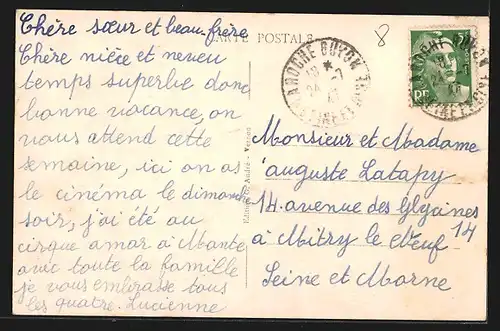 Chère sœur et beau-frère
CARTE POSTALE
8
Chère nièce et neveu
temps superbe donc
bonne vacance, on
vous attend cette
semaine, ici on as
le cinéma le dimanche
soir, j'ai été au
cirque amar à Mante
avec toute la famille
je vous embrasse tous
les quatre. Lucienne
LA ROCHE GUYON
Monsieur et Madame
auguste Latapy
14. avenue des Glycines
14
à Mitry le Neuf
Seine et Marne